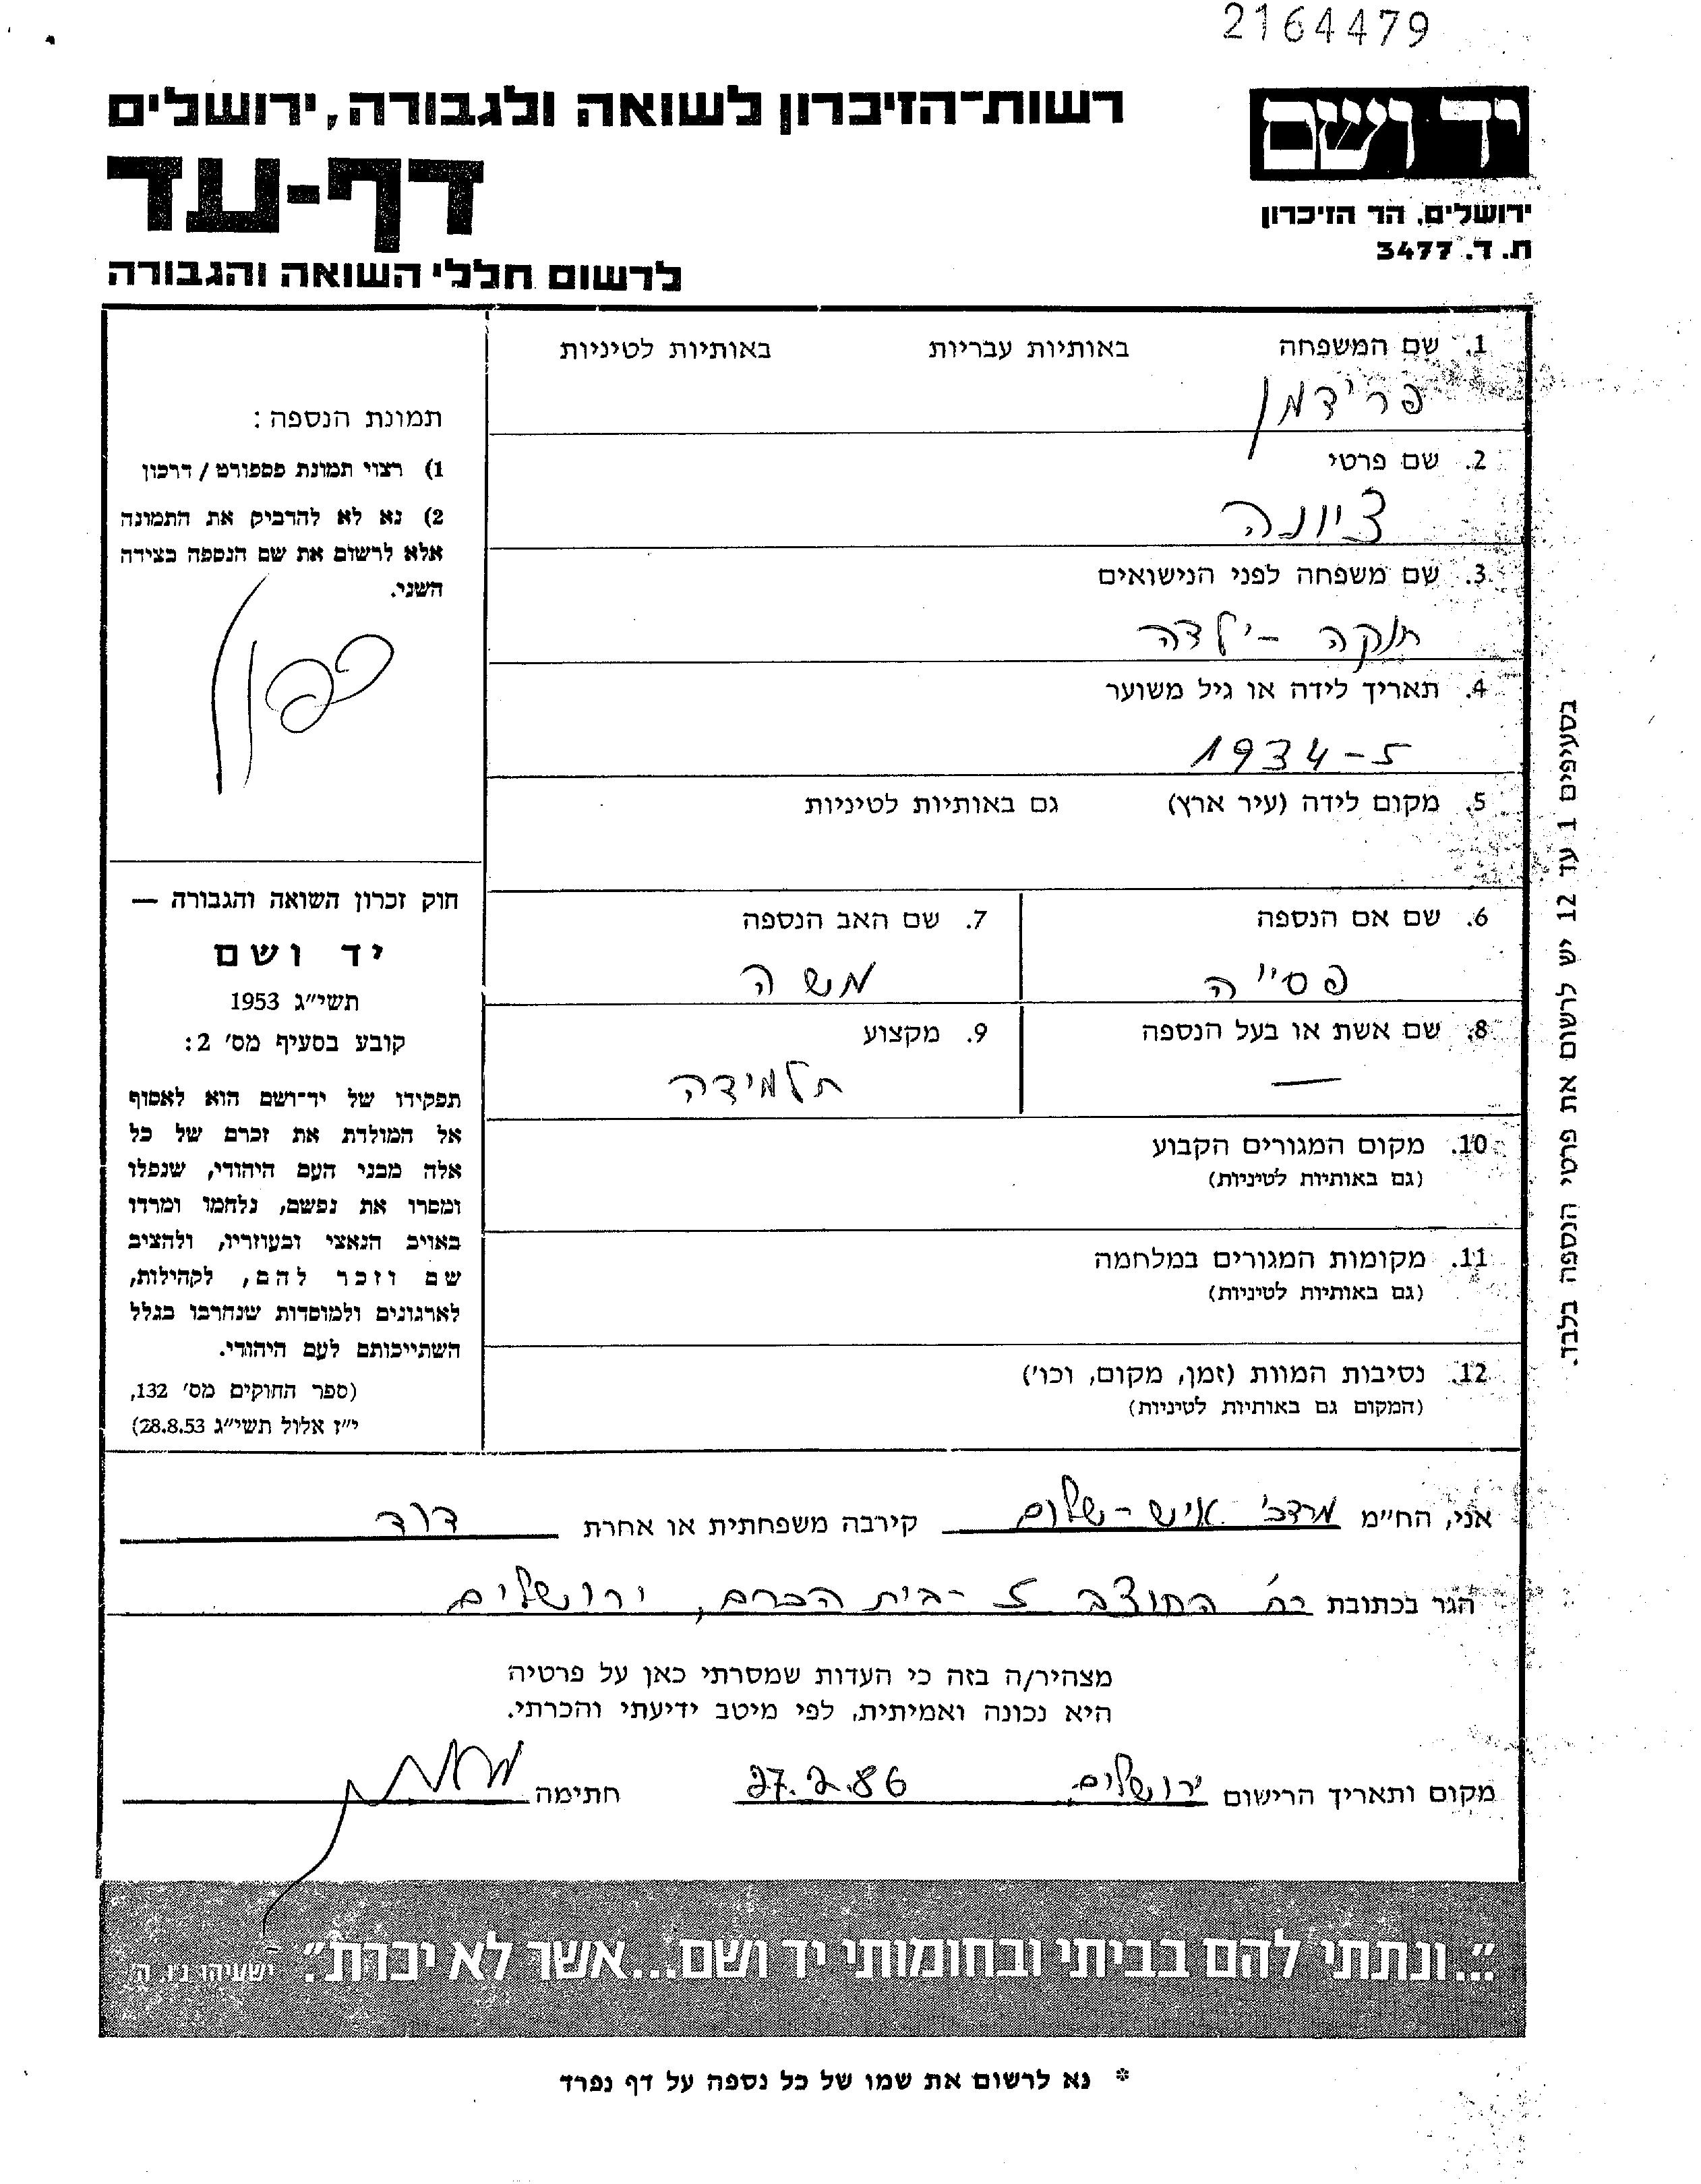 2164479
יד ושם
רשות־הזיכרון לשואה ולגבורה, ירושלים
דף-עד
ירושלים, הר הזיכרון
ת. ד. 3477
לרשום חללי השואה והגבורה
1. שם המשפחה באותיות עבריות באותיות לטיניות
פרידמן
2. שם פרטי
ציונה
3. שם משפחה לפני הנישואים
תוקה - ילדה
4. תאריך לידה או גיל משוער
1934-5
5. מקום לידה (עיר ארץ) גם באותיות לטיניות
6. שם אם הנספה 7. שם האב הנספה
פסייה משה
8. שם אשת או בעל הנספה 9. מקצוע
— תלמידה
10. מקום המגורים הקבוע
(גם באותיות לטיניות)
11. מקומות המגורים במלחמה
(גם באותיות לטיניות)
12. נסיבות המוות (זמן, מקום, וכו')
(המקום גם באותיות לטיניות)
תמונת הנספה:
1) רצוי תמונת פספורט / דרכון
2) נא לא להדביק את התמונה
אלא לרשום את שם הנספה בצידה
השני.
חוק זכרון השואה והגבורה —
יד ושם
תשי״ג 1953
קובע בסעיף מס׳ 2:
תפקידו של יד־ושם הוא לאסוף
אל המולדת את זכרם של כל
אלה מבני העם היהודי, שנפלו
ומסרו את נפשם, נלחמו ומרדו
באויב הנאצי ובעוזריו, ולהציב
שם וזכר להם, לקהילות,
לארגונים ולמוסדות שנחרבו בגלל
השתייכותם לעם היהודי.
(ספר החוקים מס׳ 132,
י״ז אלול תשי״ג 28.8.53)
בסעיפים 1 עד 12 יש לרשום את פרטי הנספה בלבד.
אני, הח״מ מרדכי איש-שלום קירבה משפחתית או אחרת דוד
הגר בכתובת רח׳ החוצב 5 - בית הכרם, ירושלים
מצהיר/ה בזה כי העדות שמסרתי כאן על פרטיה
היא נכונה ואמיתית, לפי מיטב ידיעתי והכרתי.
מקום ותאריך הרישום ירושלים 27.2.86 חתימה
״...ונתתי להם בביתי ובחומותי יד ושם...אשר לא יכרת״. ישעיהו נ״ו, ה׳
* נא לרשום את שמו של כל נספה על דף נפרד